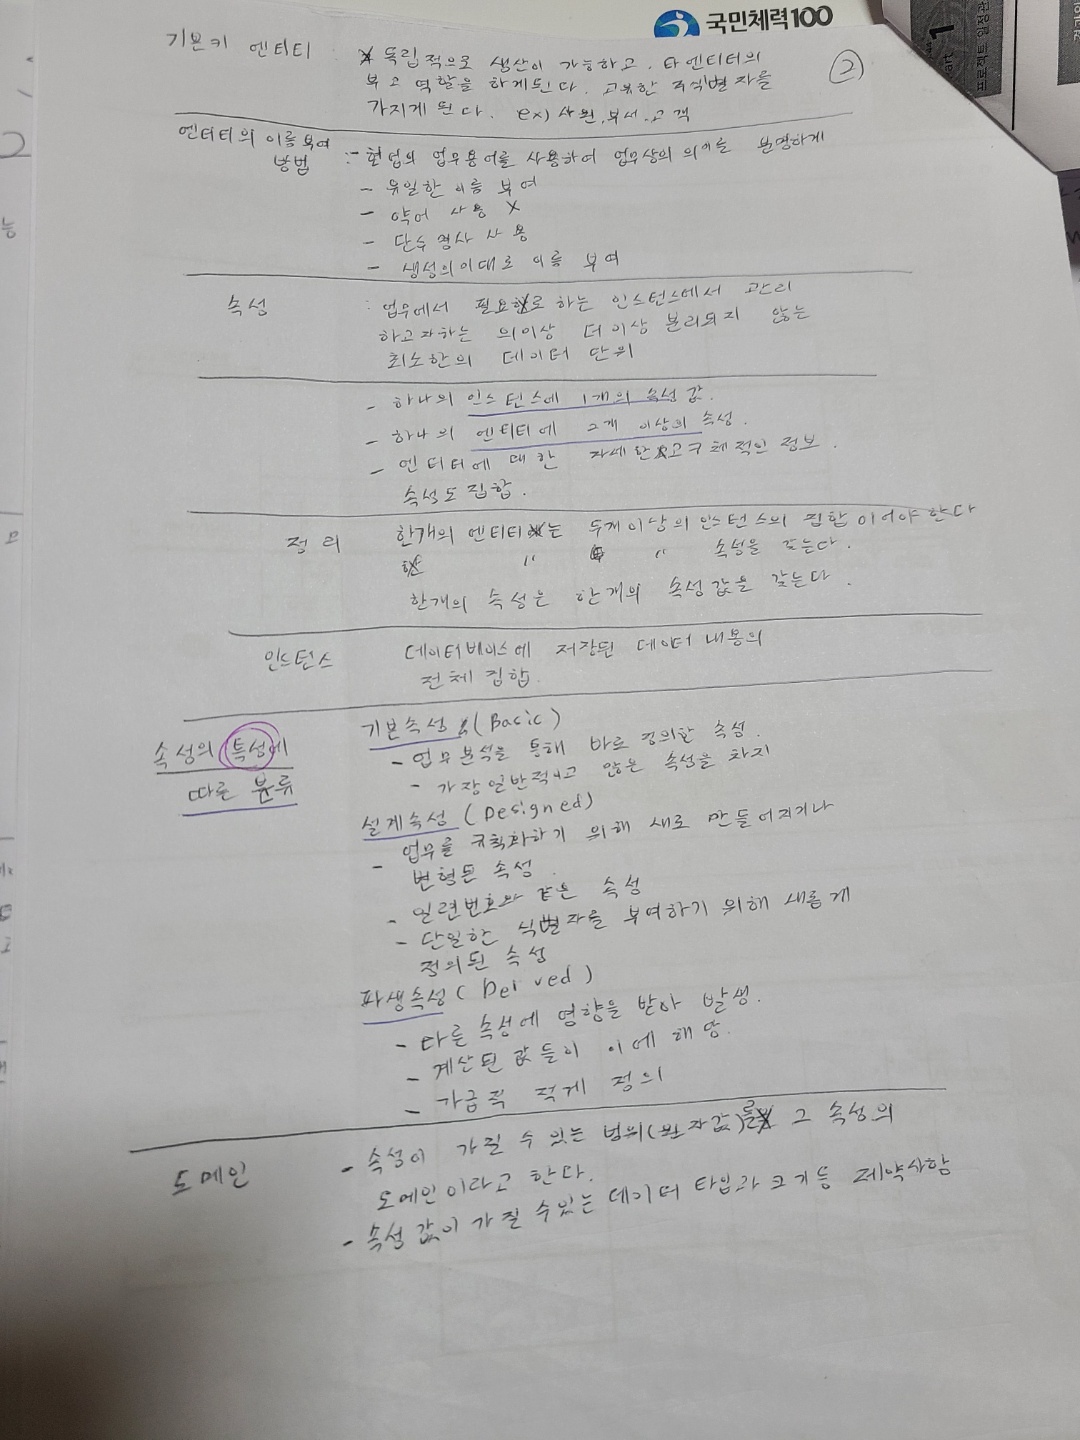 국민체력100
②
기본키 엔터티 : 독립적으로 생산이 가능하고. 타엔티터의
부고 역할을 하게된다. 고유한 주식별자를
가지게 된다. ex) 사원, 부서, 고객
엔터티의 이름 부여
방법 : - 현업의 업무용어를 사용하여 업무상의 의미를 분명하게
- 유일한 이름 부여
- 약어 사용 X
- 단수 명사 사용
- 생성의미대로 이름 부여
속성 : 업무에서 필요로 하는 인스턴스에서 관리
하고자하는 의미상 더이상 분리되지 않는
최소한의 데이터 단위
- 하나의 인스턴스에 1개의 속성 값.
- 하나의 엔티티에 2개 이상의 속성.
- 엔터티에 대한 자세한고 구체적인 정보.
속성도 집합.
정리 한개의 엔티티는 두개이상의 인스턴스의 집합이어야 한다
〃 〃 속성을 갖는다.
한개의 속성은 한개의 속성값을 갖는다.
인스턴스 데이터베이스에 저장된 데이터 내용의
전체 집합.
속성의 특성에
따른 분류
기본속성 (Basic)
- 업무분석을 통해 바로 정의한 속성.
- 가장 일반적이고 많은 속성을 차지
설계속성 (Designed)
- 업무를 규칙화하기 위해 새로 만들어지거나
변형된 속성.
- 일련번호와 같은 속성
- 단일한 식별자를 부여하기 위해 새롭게
정의된 속성
파생속성 (Derived)
- 다른 속성에 영향을 받아 발생.
- 계산된 값들이 이에 해당.
- 가급적 적게 정의
도메인 - 속성이 가질 수 있는 범위(반자값)를 그 속성의
도메인이라고 한다.
- 속성 값이 가질 수 있는 데이터 타입과 크기등 제약사항